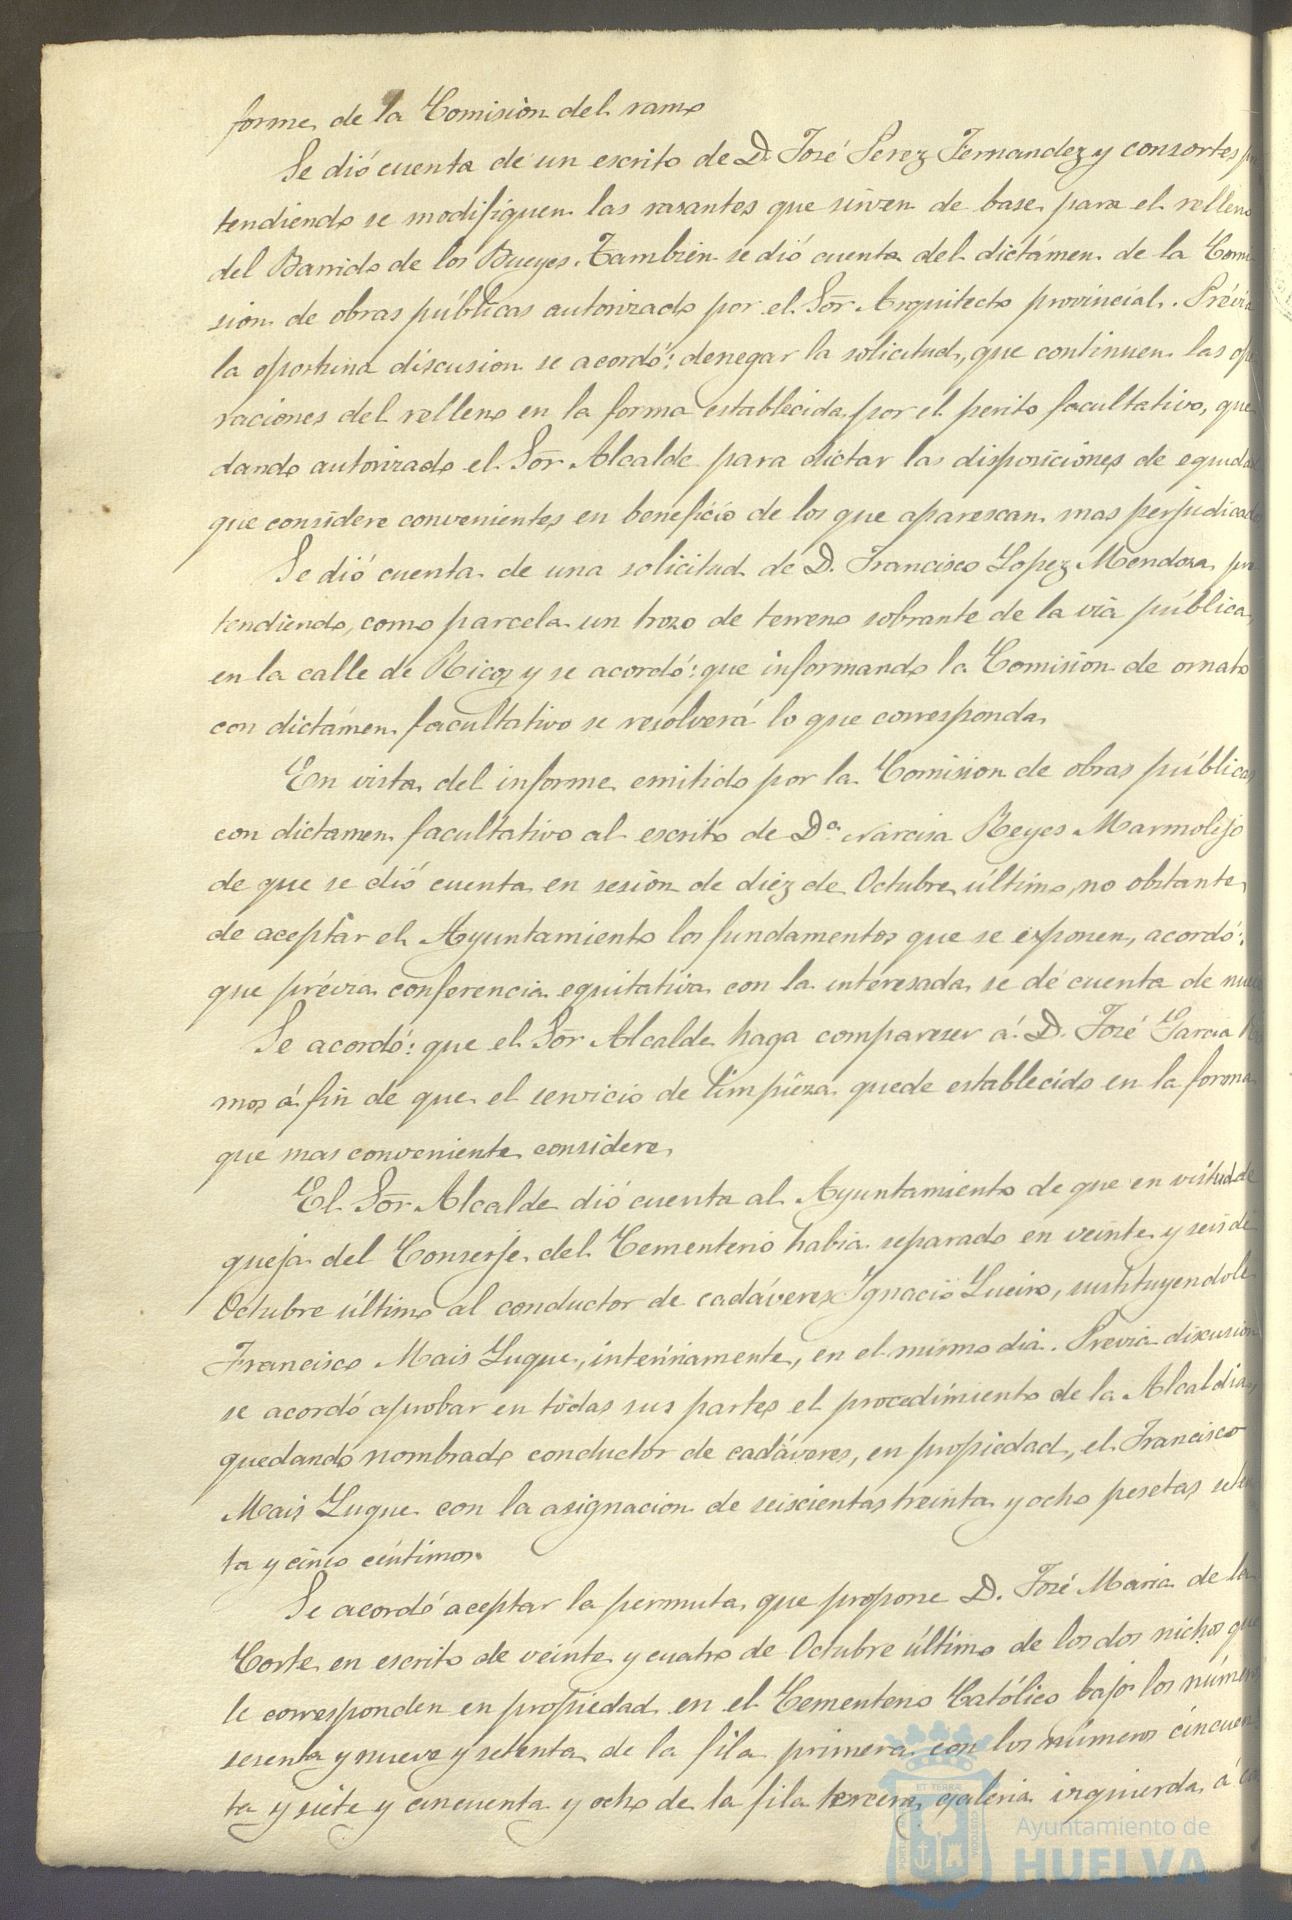 forme de la Comisión del ramo
Se dió cuenta de un escrito de D. José Perez Fernandez y consortes
tendiendo se modifiquen las rasantes que sirven de base para el relleno
del Barrido de los Bueyes. Tambien se dió cuenta del dictámen de la Comi
sion de obras públicas autorizado por el Sor Arquitecto provincial. Prévia
la oportuna discusion se acordó: denegar la solicitud, que continuen las ope
raciones del relleno en la forma establecida por el perito facultativo, que
dando autorizado el Sor Alcalde para dictar las disposiciones de equidad
que considere convenientes en beneficio de los que aparescan mas perjudicados
Se dió cuenta de una solicitud de D. Francisco Lopez Mendoza, pre
tendiendo, como parcela un trozo de terreno sobrante de la via pública,
en la calle de Ricos y se acordó: que informando la Comision de ornato
con dictámen facultativo se resolverá lo que corresponda.
En vista del informe emitido por la Comision de obras públicas
con dictamen facultativo al escrito de Da. Narcisa Reyes Marmolejo
de que se dió cuenta en sesión de diez de Octubre último, no obstante
de aceptar el Ayuntamiento los fundamentos que se exponen, acordó:
que prévia conferencia equitativa con la interesada se dé cuenta de nuevo
Se acordó: que el Sor Alcalde haga compareser á D. José Garcia
mos á fin de que el servicio de limpieza quede establecido en la forma
que mas conveniente considere.
El Sor Alcalde dió cuenta al Ayuntamiento de que en virtud de
queja del Conserje del Cementerio habia separado en veinte y seis de
Octubre último al conductor de cadáveres Ignacio Lueiro, sustituyendole
Francisco Mais Luque, interinamente, en el mismo dia. Previa discusion
se acordó aprobar en todas sus partes el procedimiento de la Alcaldia,
quedando nombrado conductor de cadáveres, en propiedad, el Francisco
Mais Luque con la asignacion de seiscientas treinta y ocho pesetas seten
ta y cinco céntimos.
Se acordó aceptar la permuta que propone D. José Maria de la
Corte en escrito de veinte y cuatro de Octubre último de los dos nichos que
le corresponden en propiedad en el Cementerio Católico bajo los números
sesenta y nueve y setenta de la fila primera con los números cincuen
ta y siete y cincuenta y ocho de la fila tercera, galeria izquierda, á
Ayuntamiento de
HUELVA